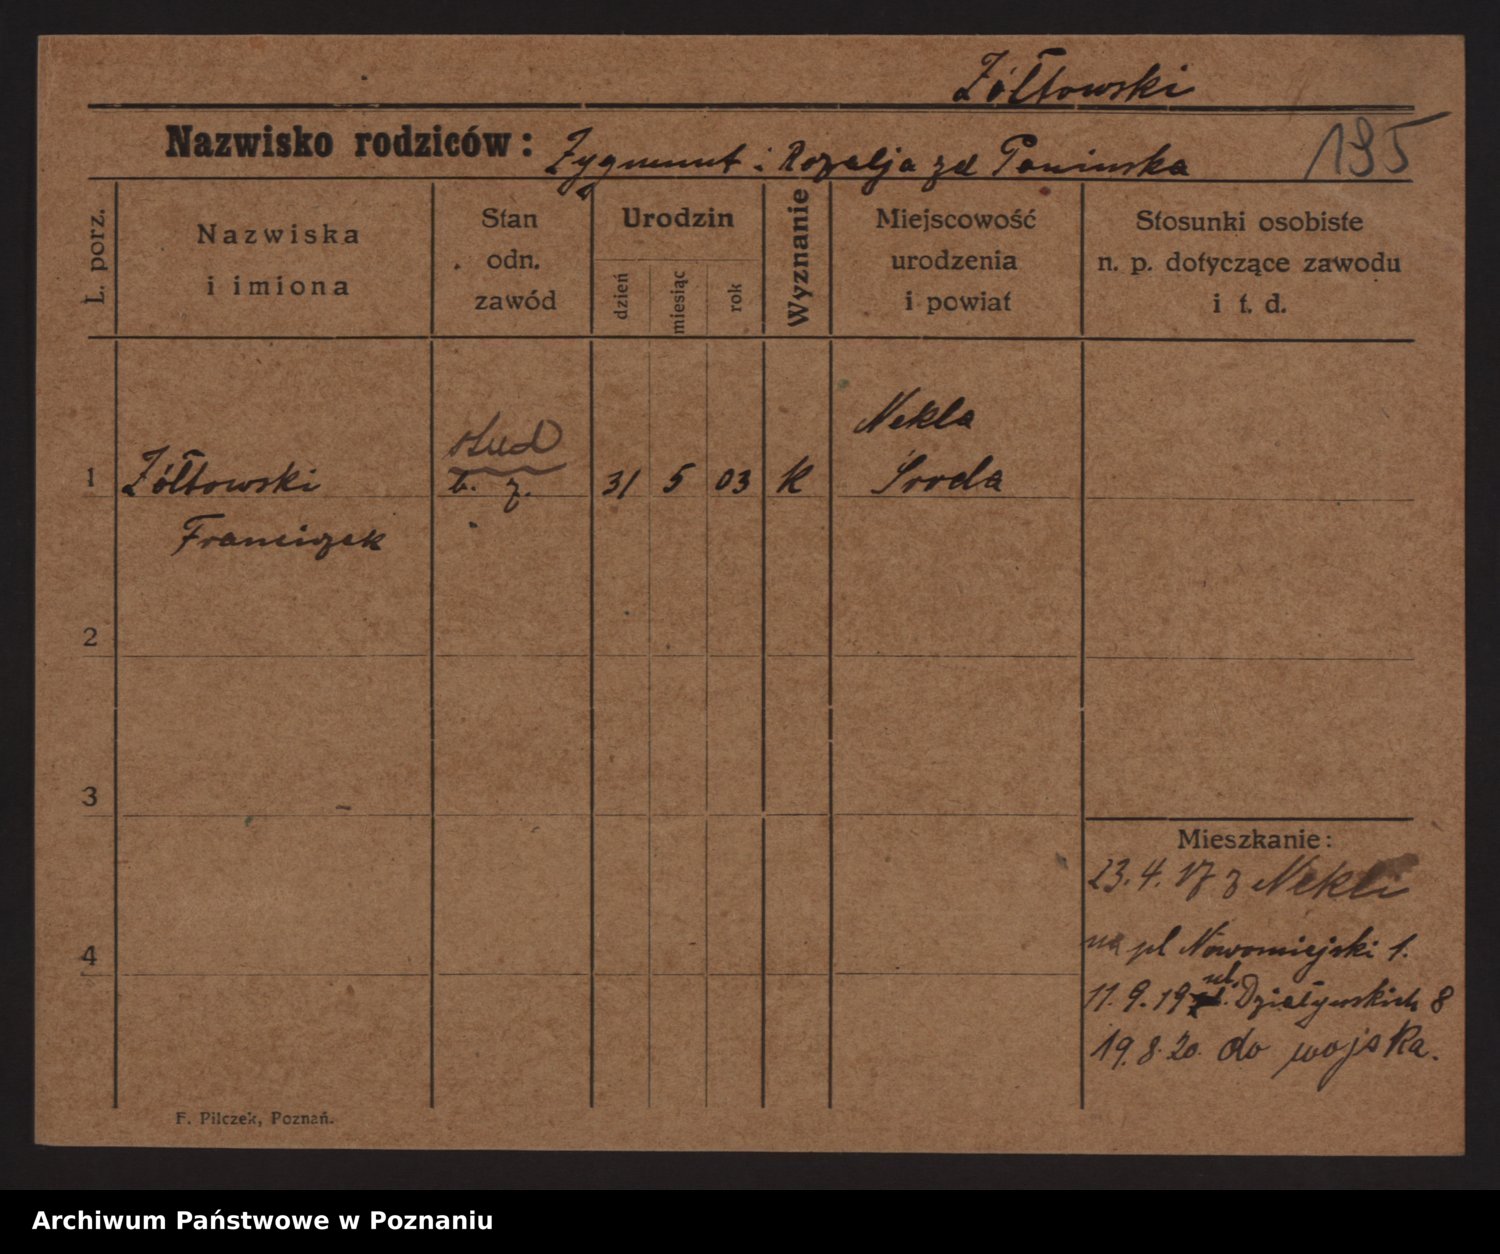 Żółtowski
Nazwisko rodziców: Zygmunt i Rozalja zd Ponińska
195
L. porz.
Nazwiska
i imiona
Stan
odn.
zawód
Urodzin
dzień
miesiąc
rok
Wyznanie
Miejscowość
urodzenia
i powiat
Stosunki osobiste
n. p. dotyczące zawodu
i t. d.
Nekla
stud
1 Żółtowski b. z. 31 5 03 k Środa
Franciszek
2
3
Mieszkanie:
23.4.17 z Nekli
na pl Nowomiejski 1.
4
ul.
11.9.19 Działyńskich 8
19.8.20. do wojska.
F. Pilczek, Poznań.
Archiwum Państwowe w Poznaniu